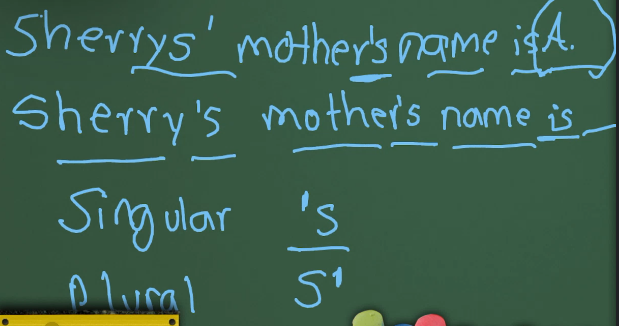 Sherrys' mother's name is A.
Sherry's mother's name is
Singular 's
Plural s'